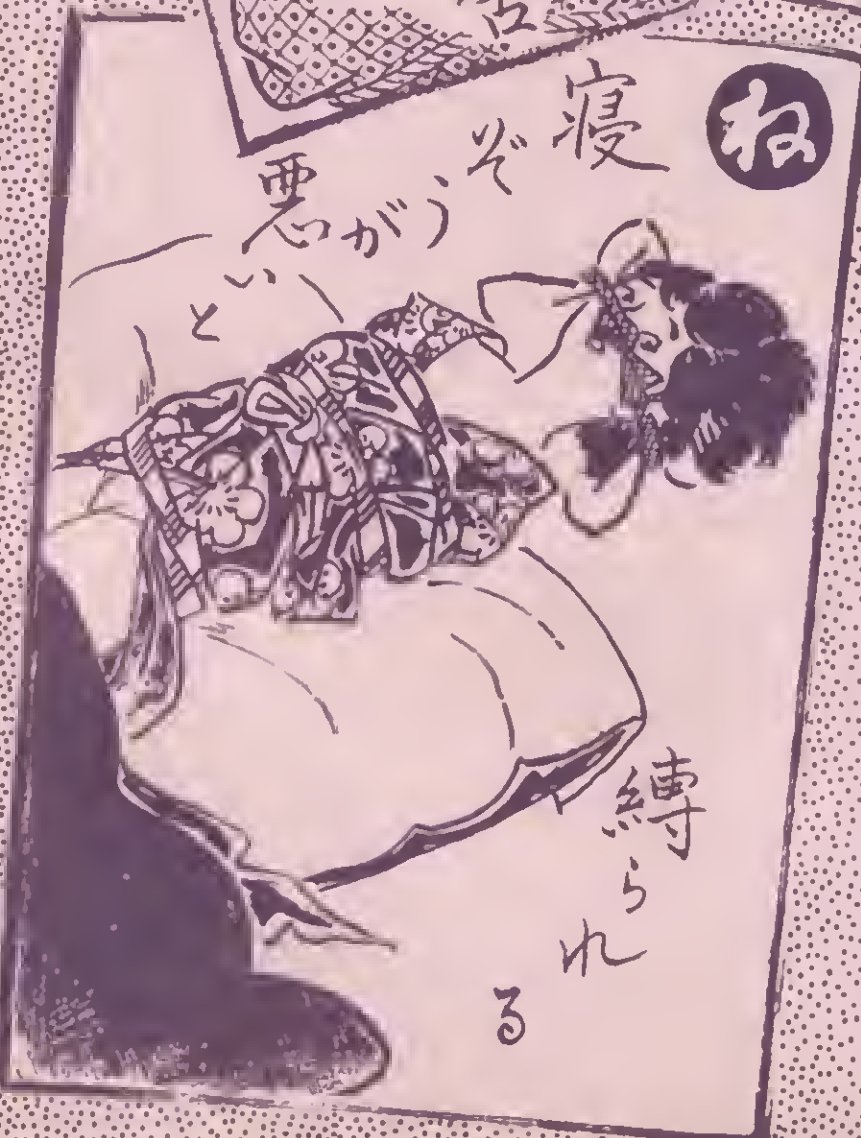 ね
寝ぞうが悪いと
縛られる
古